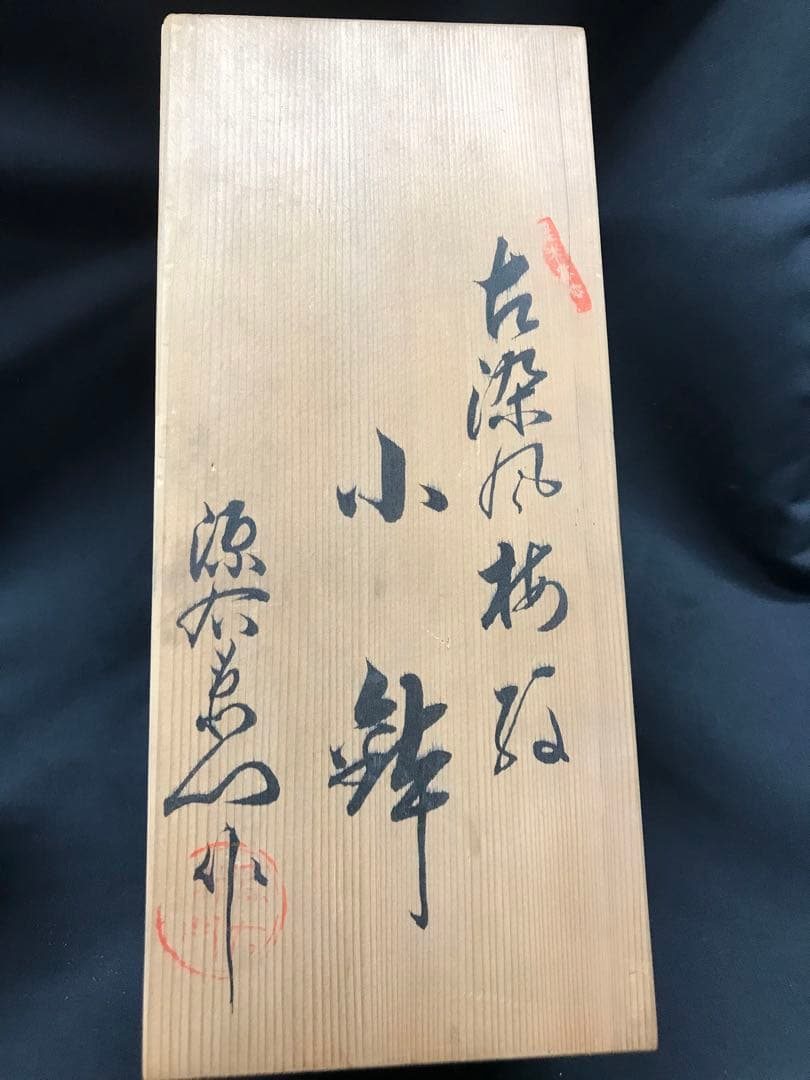 古染風梅紋
小鉢
源右衛門作